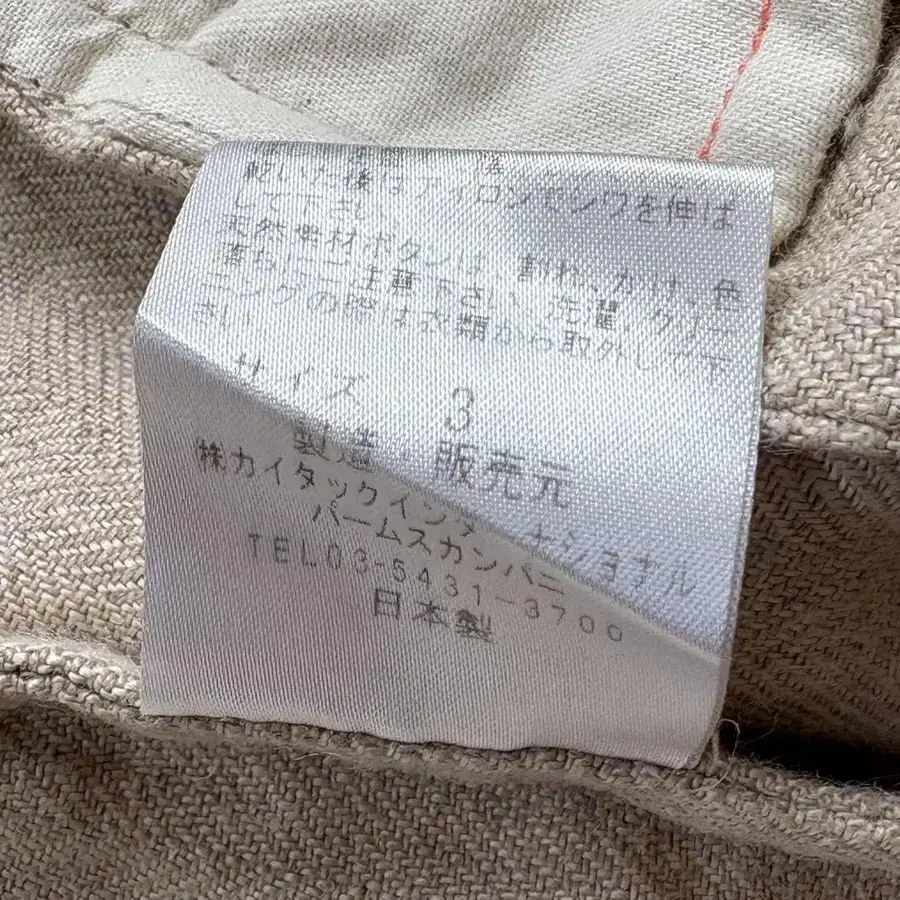 乾いた後はアイロンでシワを伸ば
して下さい。
天然素材ボタンは、割れ、かけ、色
落ちにご注意下さい。洗濯、クリー
ニングの際は衣類から取外して下
さい。
サイズ 3
製造・販売元
㈱カイタックインターナショナル
パームスカンパニー
TEL03-5431-3700
日本製